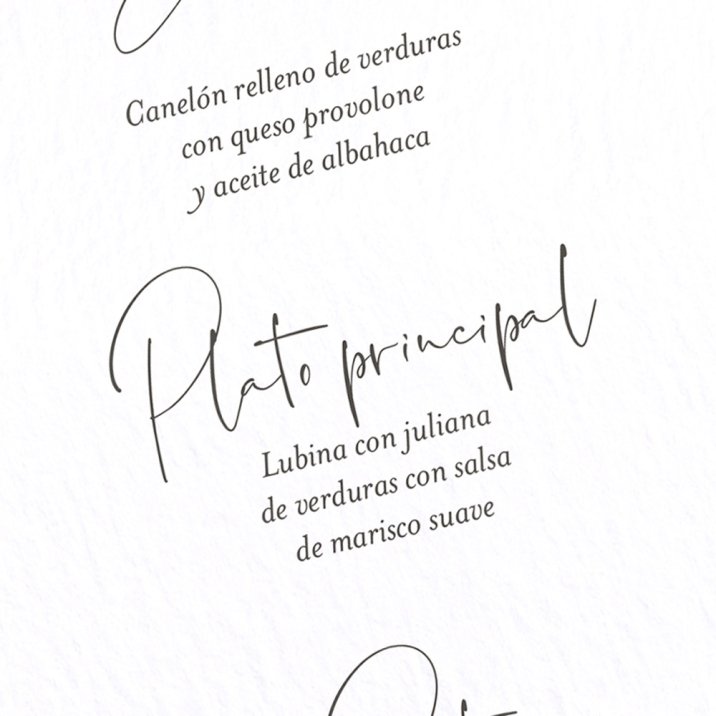 Canelón relleno de verduras
con queso provolone
y aceite de albahaca
Plato principal
Lubina con juliana
de verduras con salsa
de marisco suave